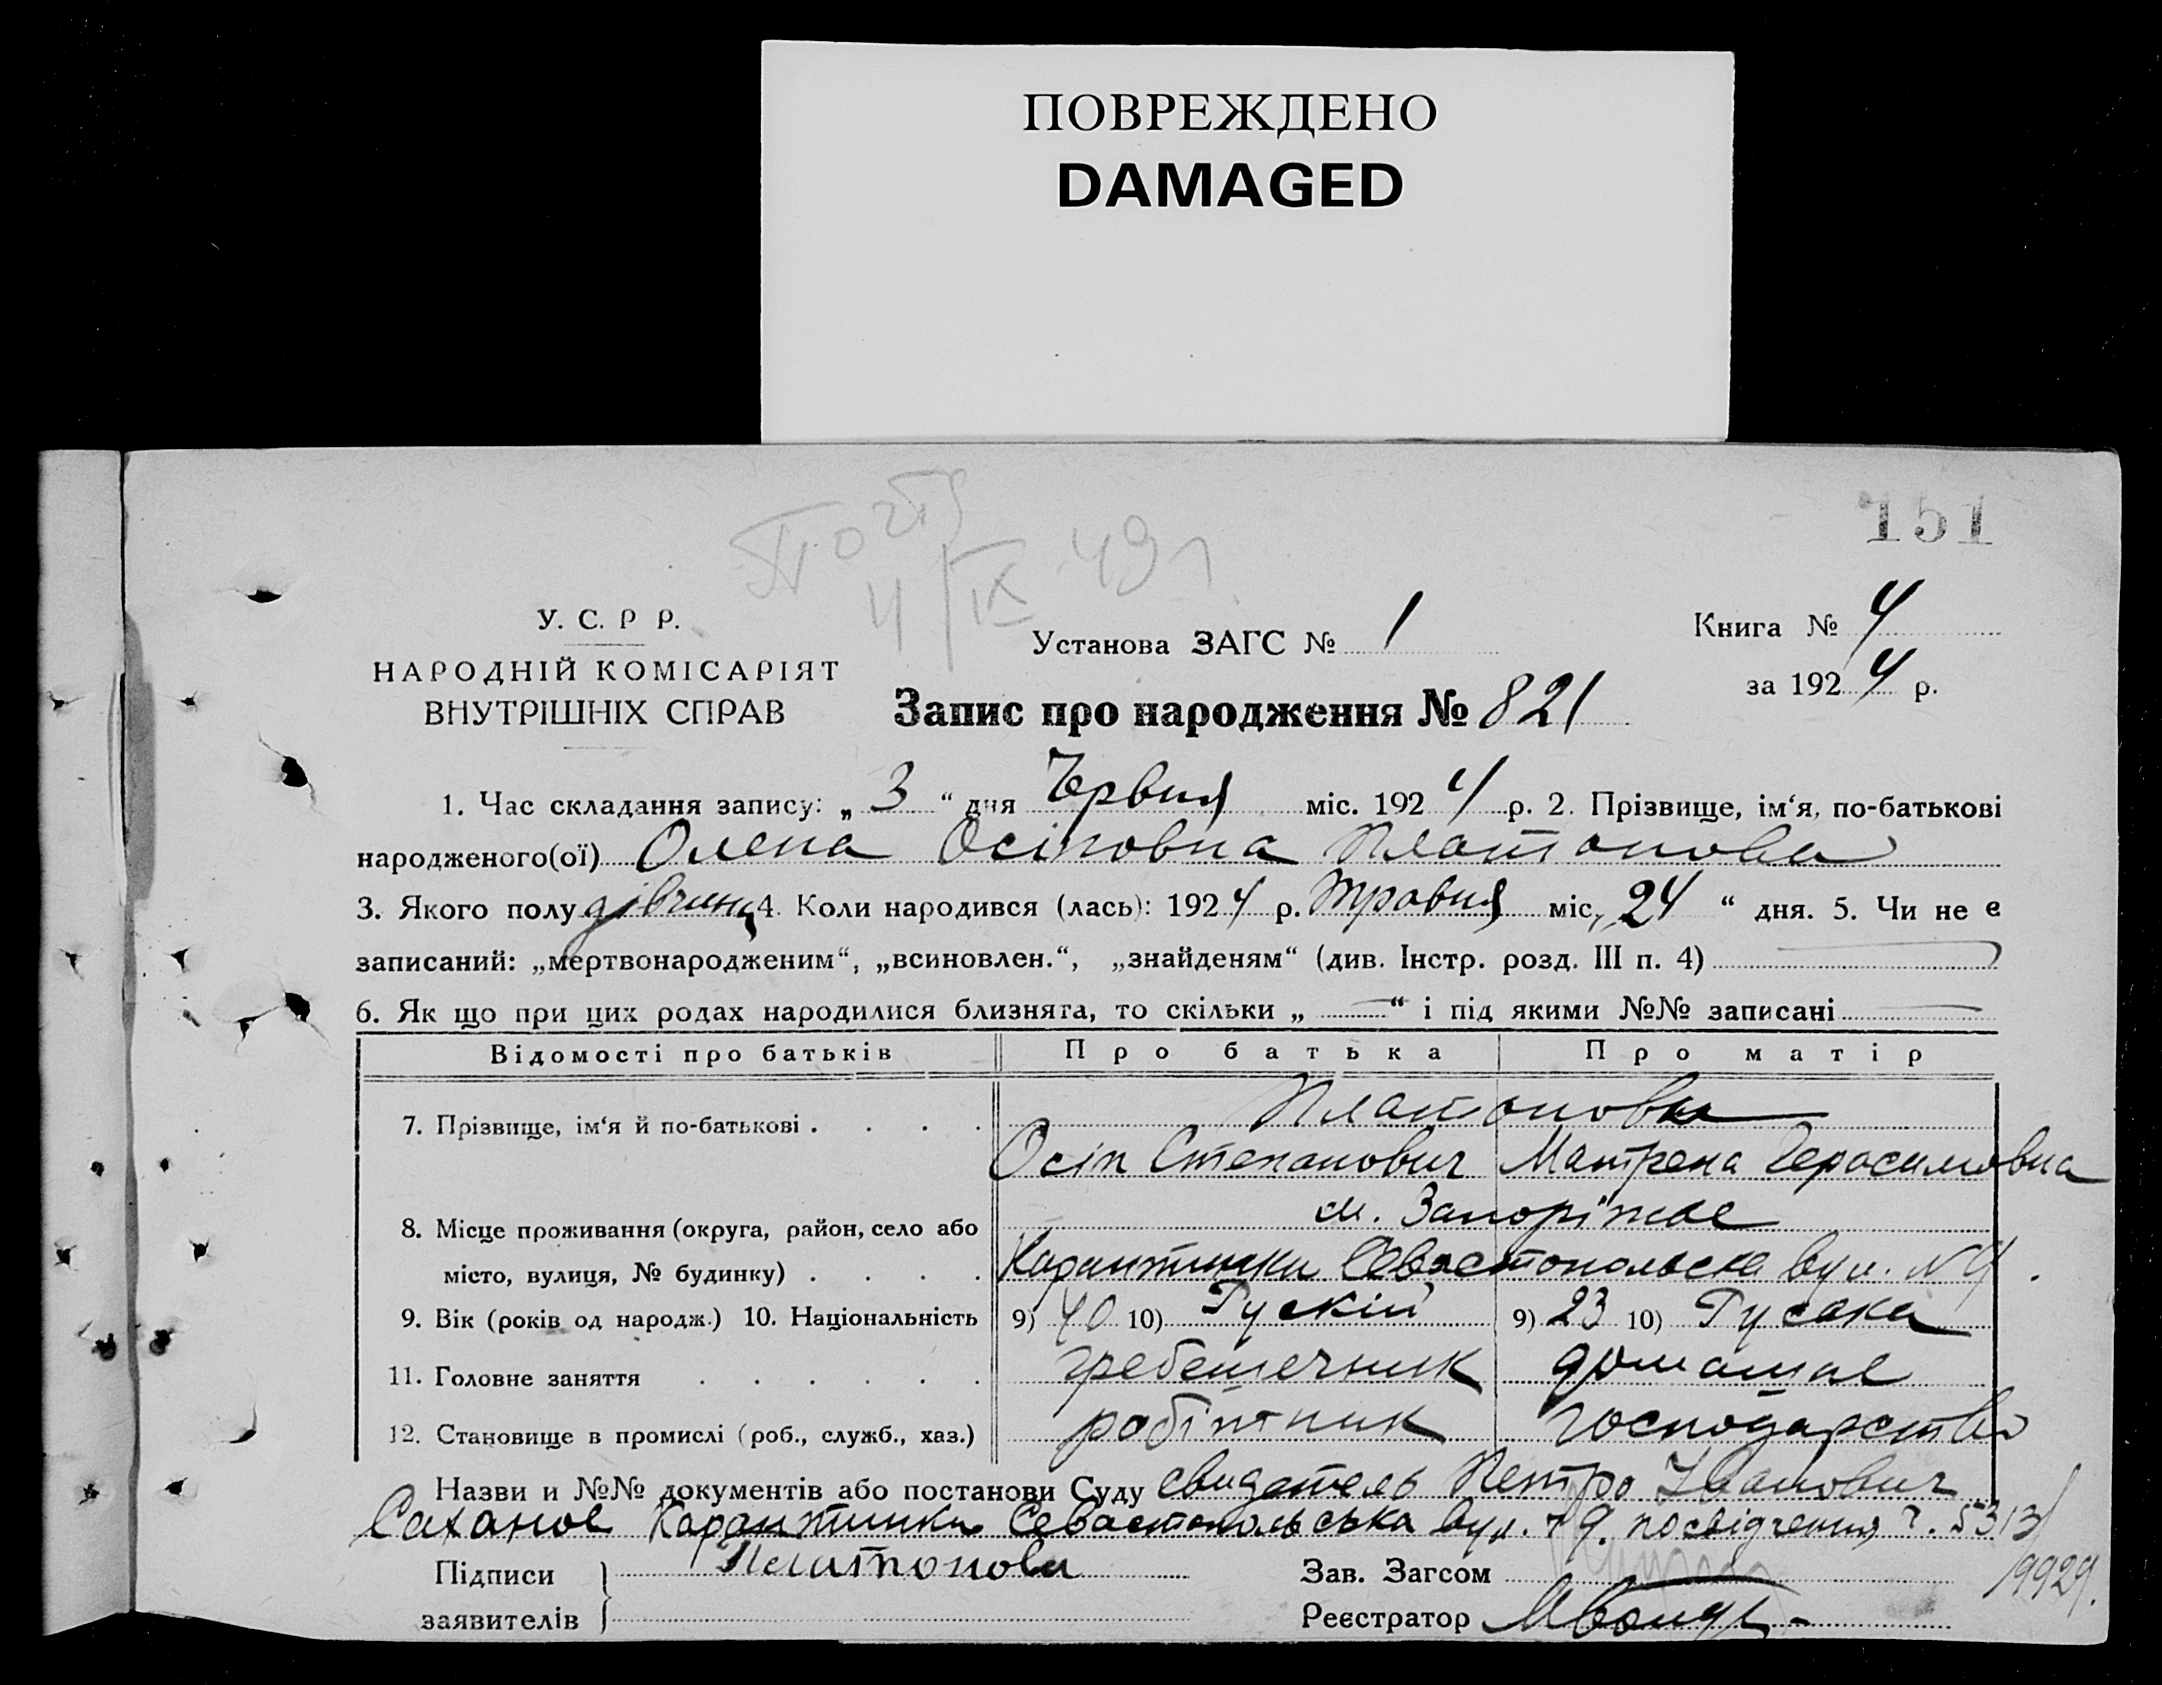 ПОВРЕЖДЕНО
DAMAGED
151
4/IX 49
У. С. Р Р.
НАРОДНІЙ КОМІСАРІЯТ
ВНУТРІШНІХ СПРАВ
Установа ЗАГС № 1
Книга № 4
за 1924 р.
Запис про народження № 821
1. Час складання запису: „ 3 “ дня Червня міс. 1924 р. 2. Прізвище, ім‘я, по-батькові
народженого(ої) Олена Осіповна Платонова
3. Якого полу дівчина 4. Коли народився (лась): 1924 р. травня міс. „ 24 “ дня. 5. Чи не є
записаний: „мертвонародженим“, „всиновлен.“, „знайденям“ (див. Інстр. розд. III п. 4)
6. Як що при цих родах народилися близнята, то скільки „ — “ і під якими №№ записані —
Відомості про батьків Про батька Про матір
7. Прізвище, ім‘я й по-батькові . . . . Платонови
Осіп Степанович Матрена Герасимовна
8. Місце проживання (округа, район, село або м. Запоріжже
місто, вулиця, № будинку) . . . . Карантинка Севастопольска вул. N 9.
9. Вік (років од народж.) 10. Національність 9) 40 10) Руский 9) 23 10) Руська
11. Головне заняття . . . . . . гребенечник домашне
12. Становище в промислі (роб., служб., хаз.) робітник господарство
Назви и №№ документів або постанови Суду свидетель Петро Іванович
Карантинка Севастопольська вул. 9. посвідчення ч. 5313/
19929.
Підписи Платонова Зав. Загсом
заявителів Реєстратор